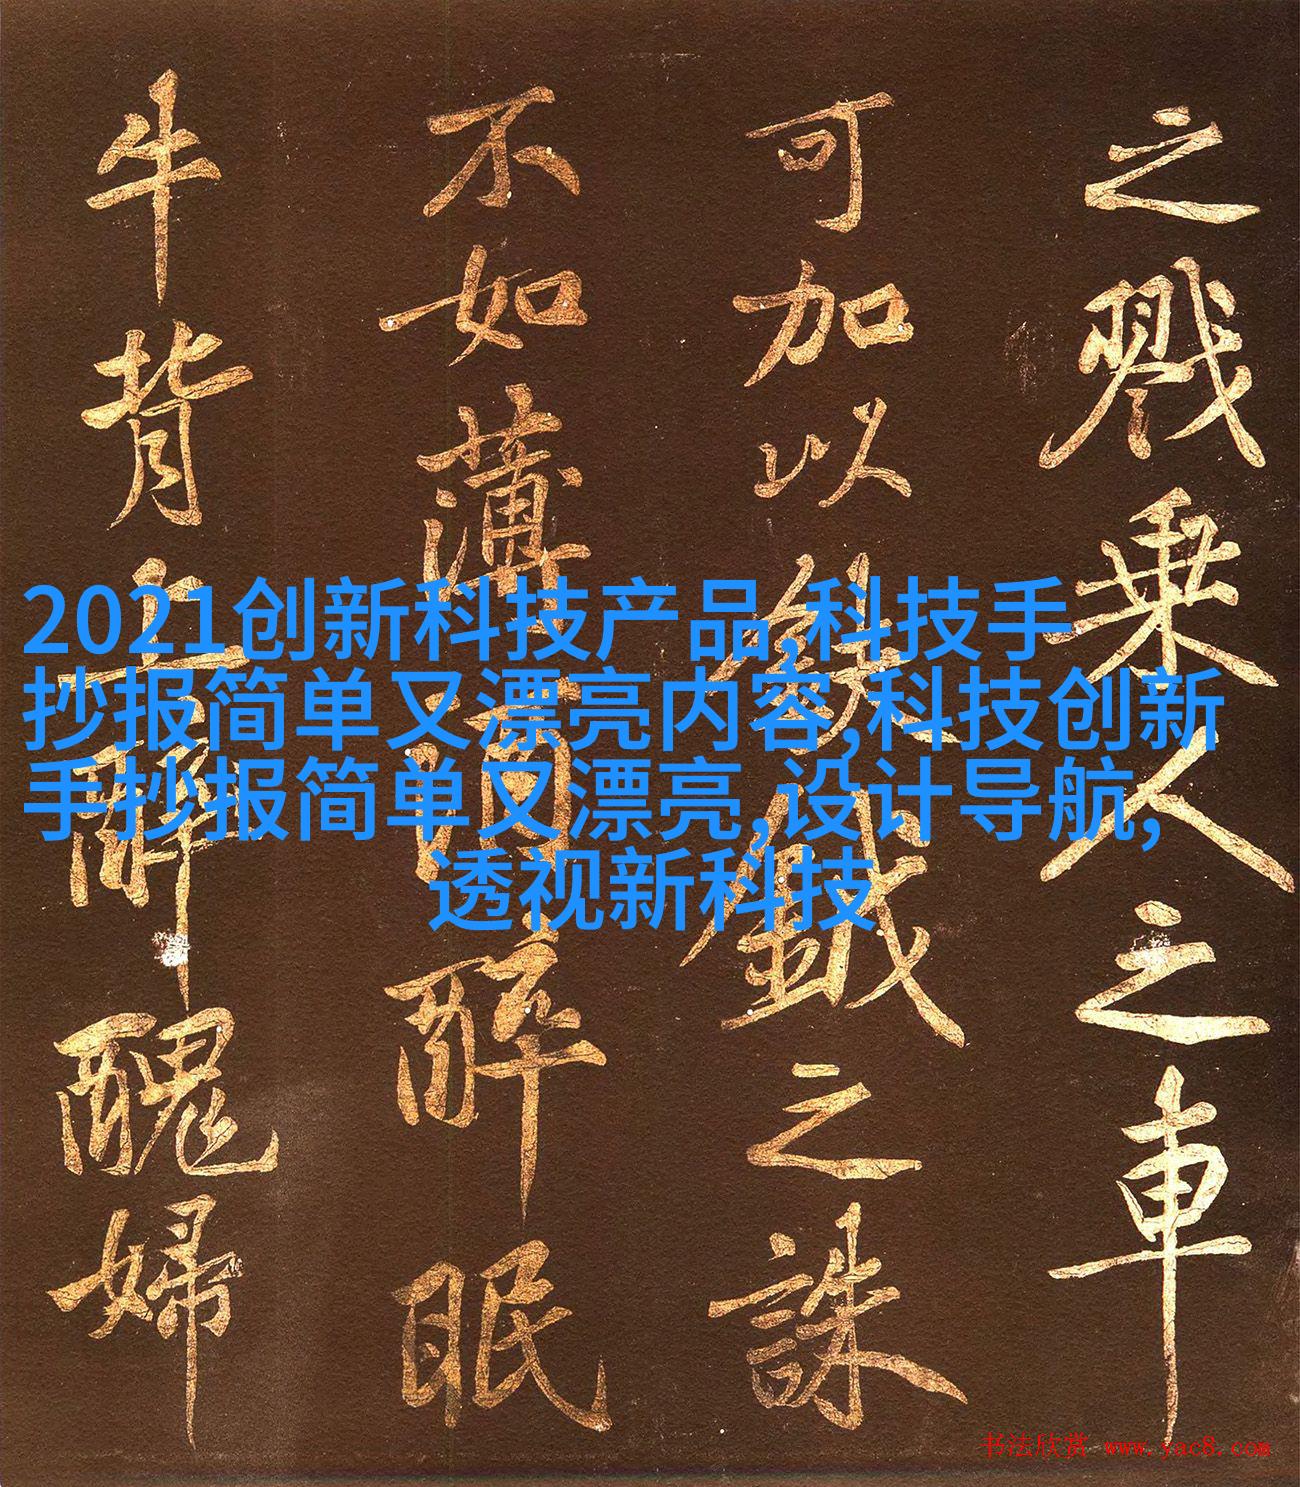 之戮乘人之車
可加以鈇鉞之誅
不如薄醉眠
牛背上醉醜婦
2021创新科技产品,科技手
抄报简单又漂亮内容,科技创新
手抄报简单又漂亮,设计导航,
透视新科技
书法欣赏 www.yac8.com